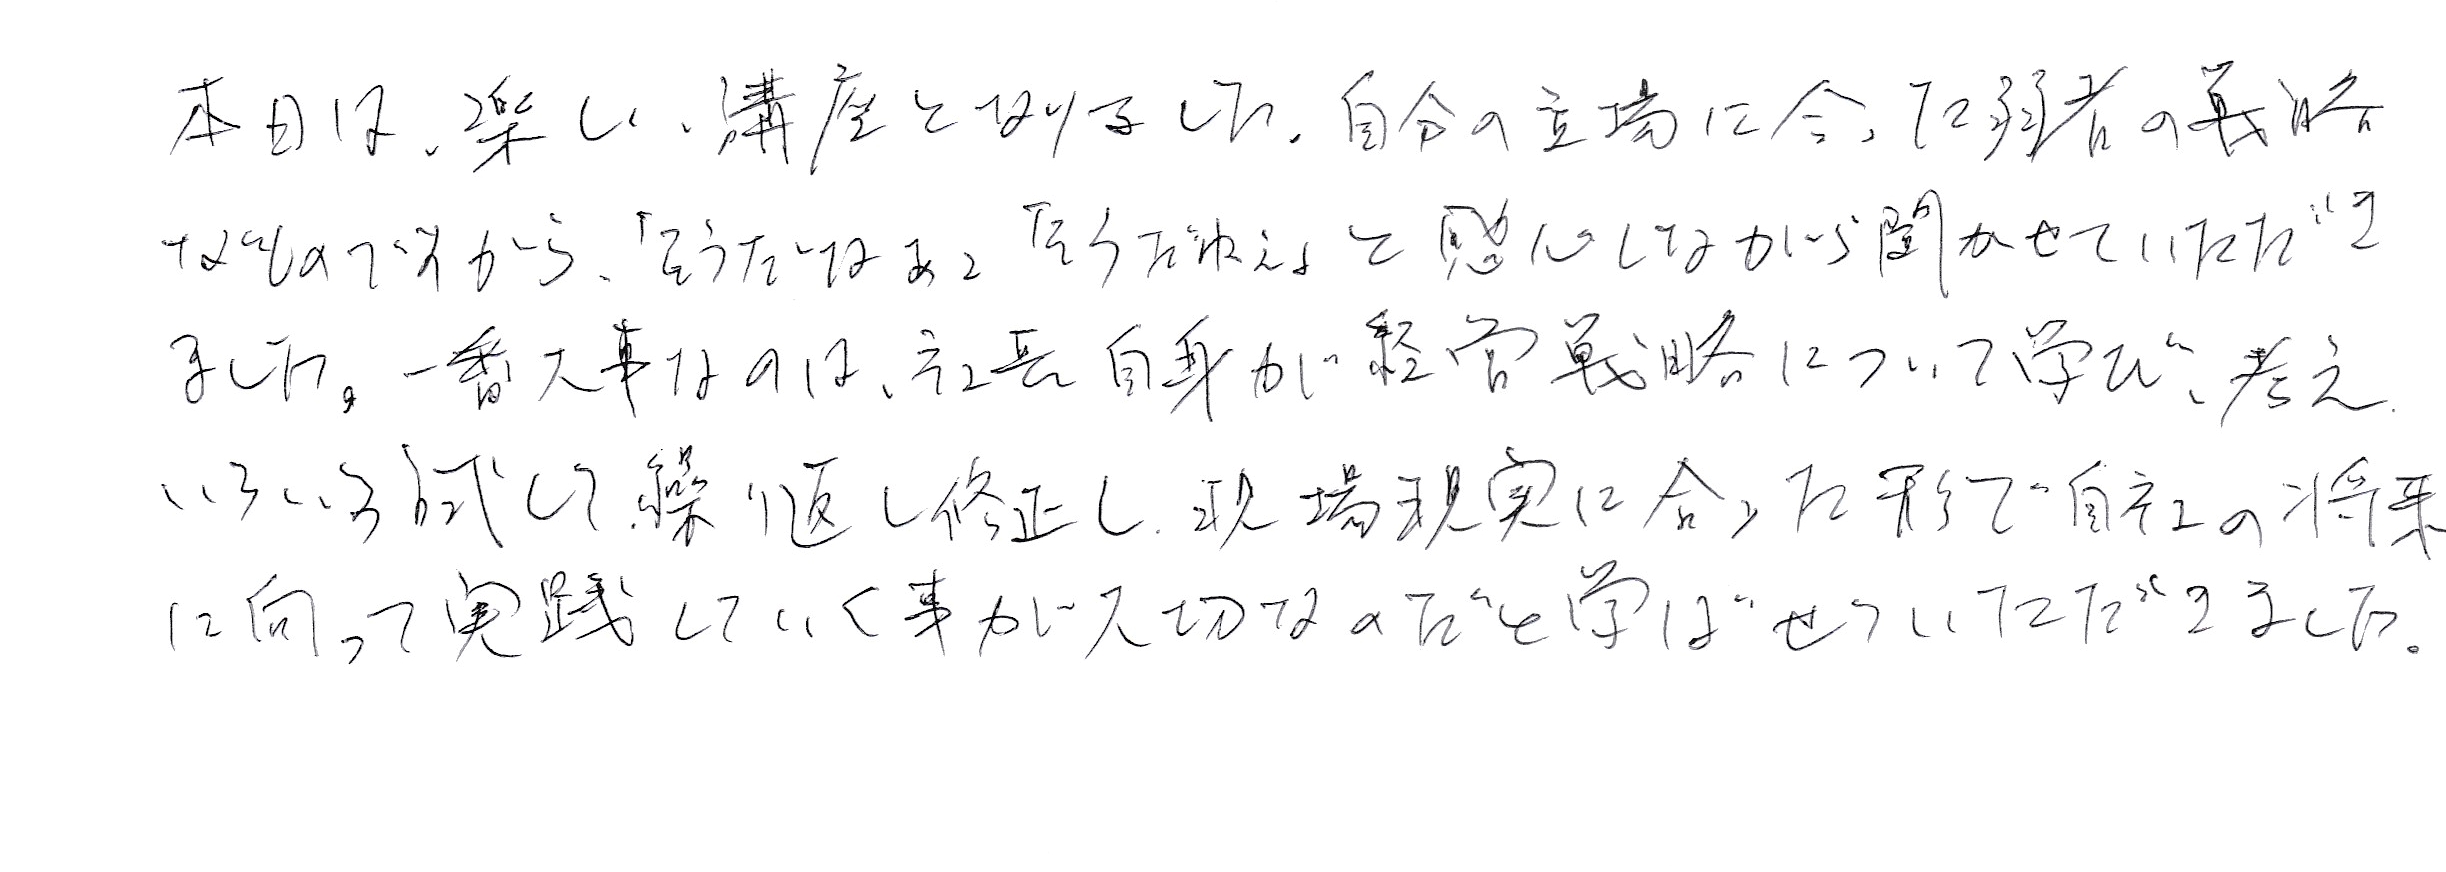 本日は、楽しい、講座となりました。自分の立場に合った弱者の戦略
なものですから、「そうだなぁ」「そうだねぇ」と感心しながら聞かせていただき
ました。一番大事なのは、社長自身が経営戦略について学び、考え、
いろいろ試して繰り返し修正し、現場現実に合った形で自社の将来
に向って実践していく事が大切なのだと学ばせていただきました。